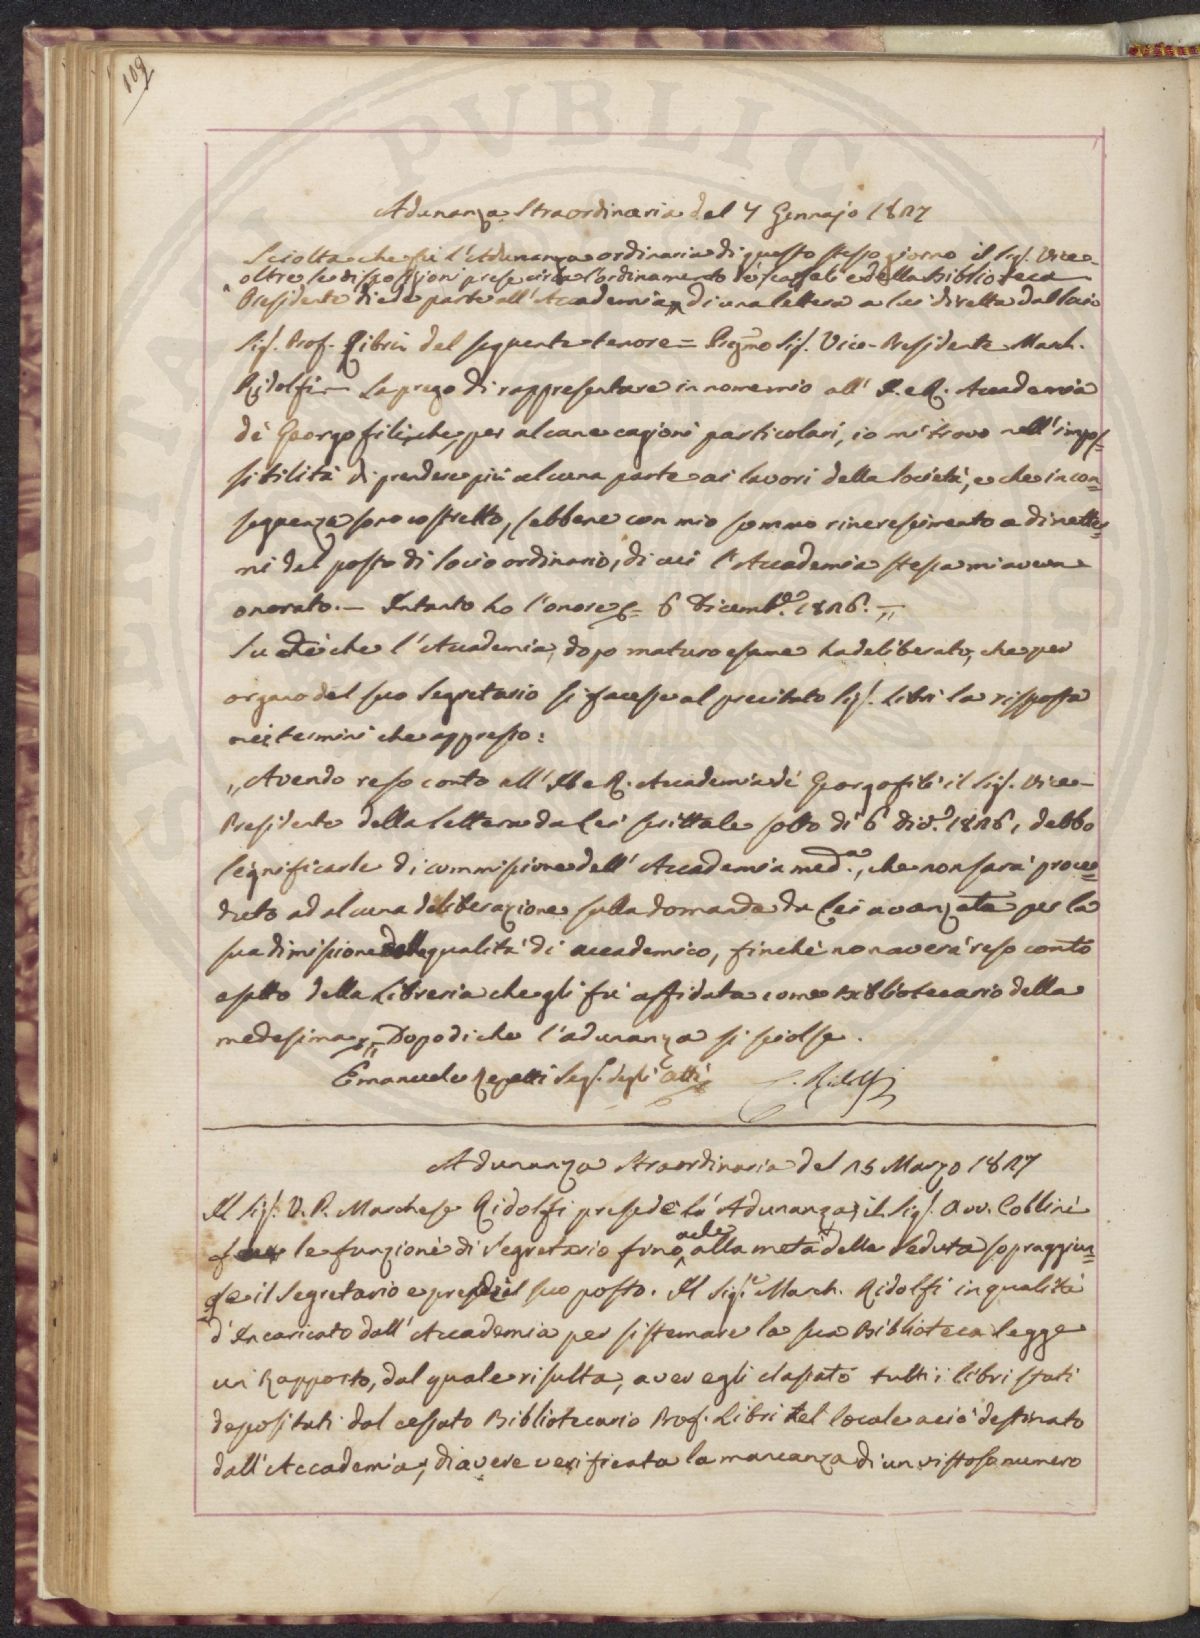 109
Adunanza Straordinaria del 7 Gennajo 1827
Sciolta che fù l'Adunanza ordinaria di questo stesso giorno il Sig. Vice-
oltre le disposizioni prese circa l'ordinamento de' scaffali e della Biblioteca
Presidente diede parte all'Accademia, di una lettera a lui diretta dal Socio
Sig. Prof. Libri del seguente tenore = Pregmo Sig. Vice-Presidente March.
Ridolfi — La prego di rappresentare in nome mio all' I. e R. Accademia
de' Georgofili, che per alcune cagioni particolari, io mi trovo nell'impos=
sibilità di prendere più alcuna parte ai lavori della Società, e che in con=
seguenza sono costretto, sebbene con mio sommo rincrescimento a dimetter=
mi dal posto di Socio ordinario, di cui l'Accademia stessa mi aveva
onorato. — Intanto ho l'onore &= 6 Dicembe. 1826. =,,
Su di che l'Accademia, dopo maturo esame ha deliberato, che per
organo del suo Segretario si facesse al precitato Sig. Libri la risposta
nei termini che appresso:
,,Avendo reso conto all' I. e R. Accademia de' Georgofili il Sig. Vice-
Presidente della lettera da Lei scrittale sotto dì 6 Dice. 1826, debbo
significarle di commissione dell' Accademia meda., che non sarà proce=
duto ad alcuna deliberazione sulla domanda da Lei avanzata per la
sua dimissione dalla qualità di accademico, finchè non averà reso conto
esatto della Libreria che gli fù affidata come Bibliotecario della
medesima,, Dopo di che l'adunanza si sciolse.
Emanuele Repetti Seg. degli Atti C. Ridolfi
Adunanza Straordinaria del 15 Marzo 1827
Il Sig. V. P. Marchese Ridolfi presedè l'Adunanza; il Sig. Avv. Collini
le funzioni di Segretario fino alla metà della Seduta sopraggiun=
ge il Segretario e prende il suo posto. Il Sige. March. Ridolfi in qualità
d'Incaricato dall' Accademia per sistemare la sua Biblioteca legge
un Rapporto, dal quale risulta, aver egli classato tutti i libri stati
depositati dal cessato Bibliotecario Prof. Libri nel locale a ciò destinato
dall'Accademia; di avere verificata la mancanza di un vistoso numero